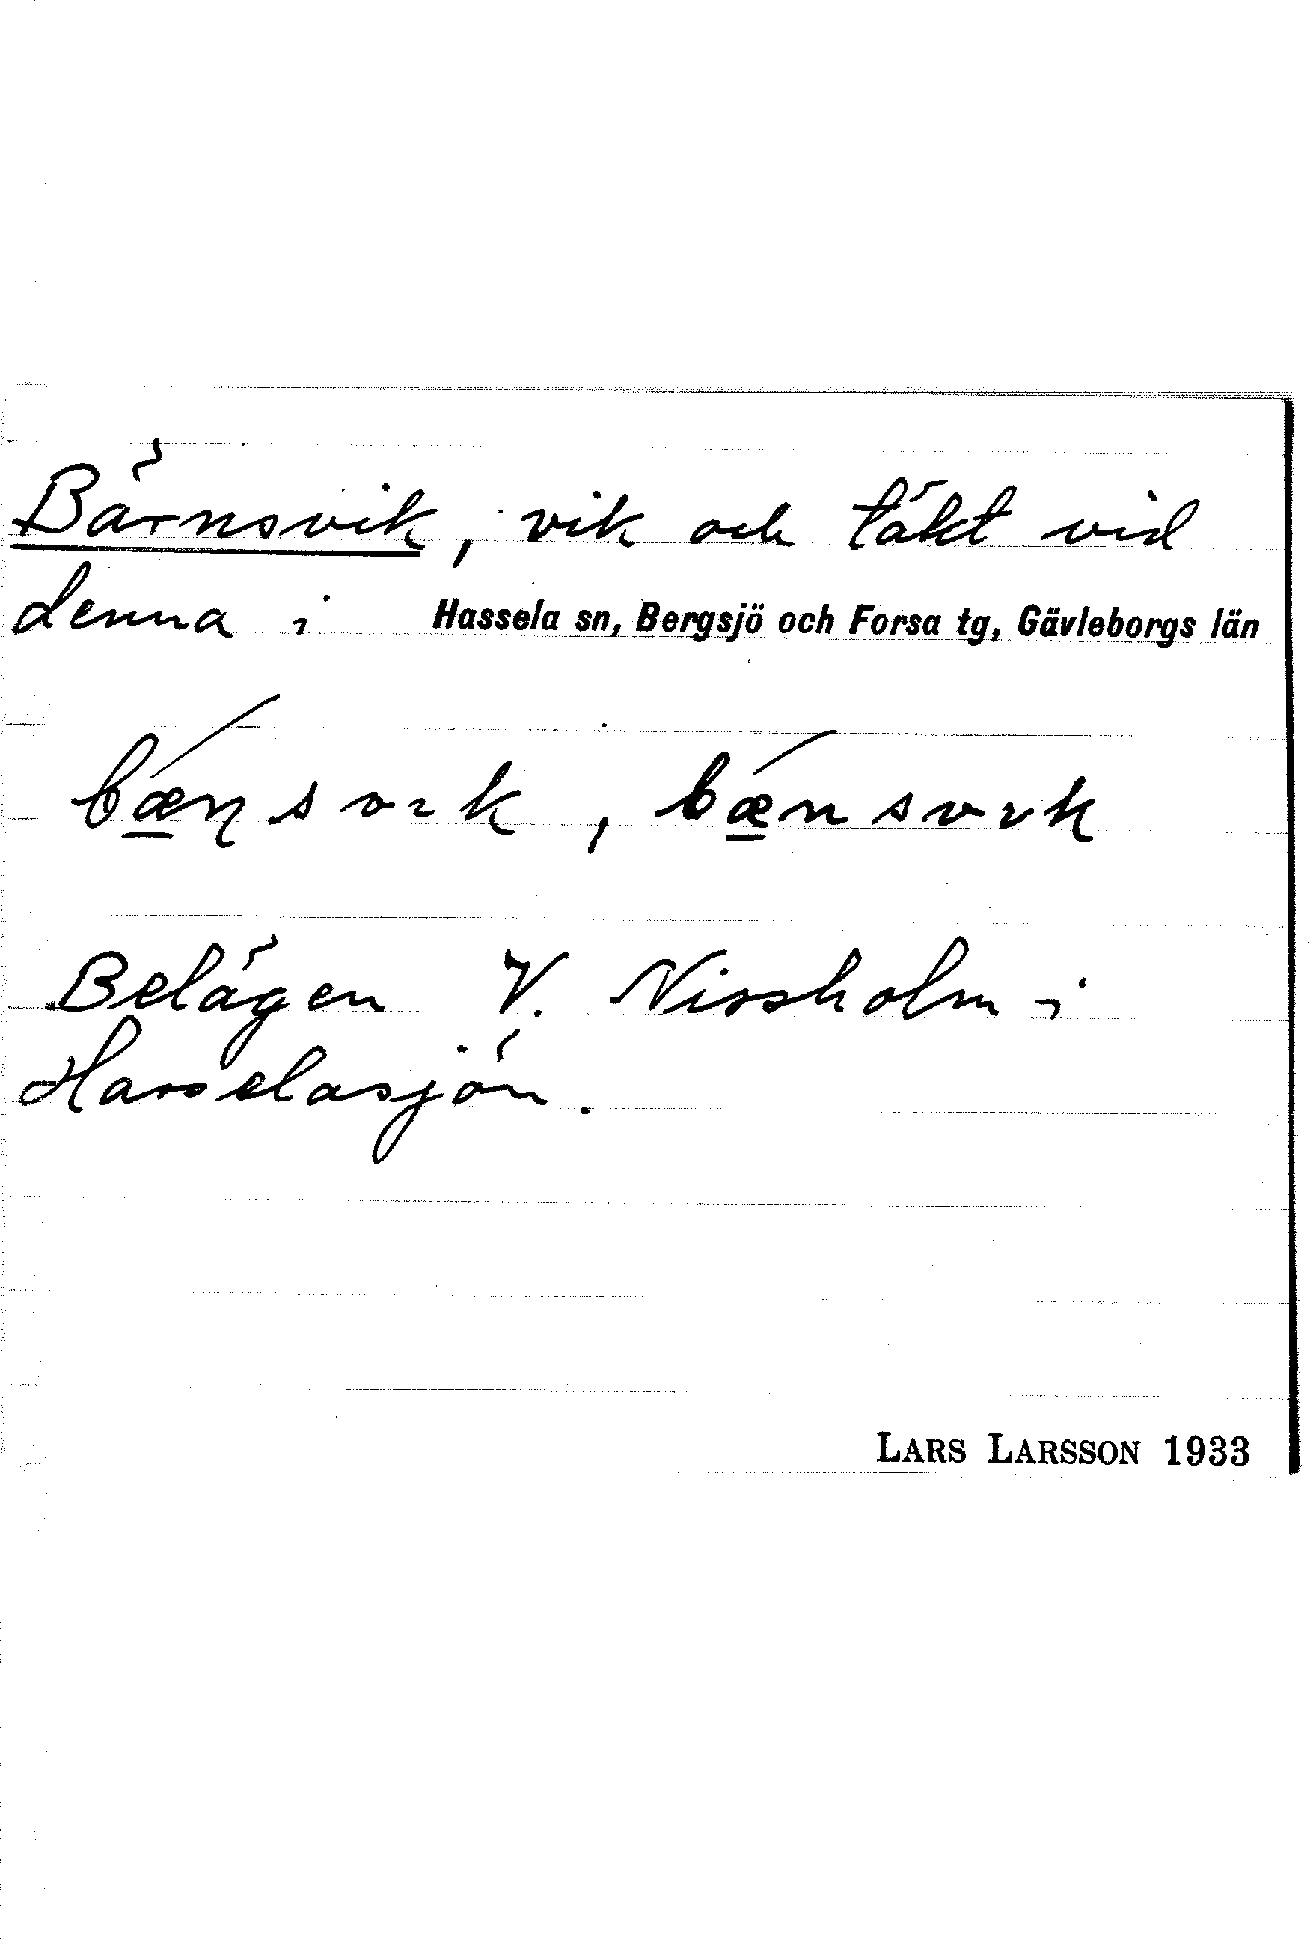 Bärnsvik, vik och täkt vid
denna i Hassela sn, Bergsjö och Forsa tg, Gävleborgs län
bǽ̲ɳsvɩk, bǽ̲nsvɩk
Belägen V. Nissholm i
Hasselasjön.
LARS LARSSON 1933